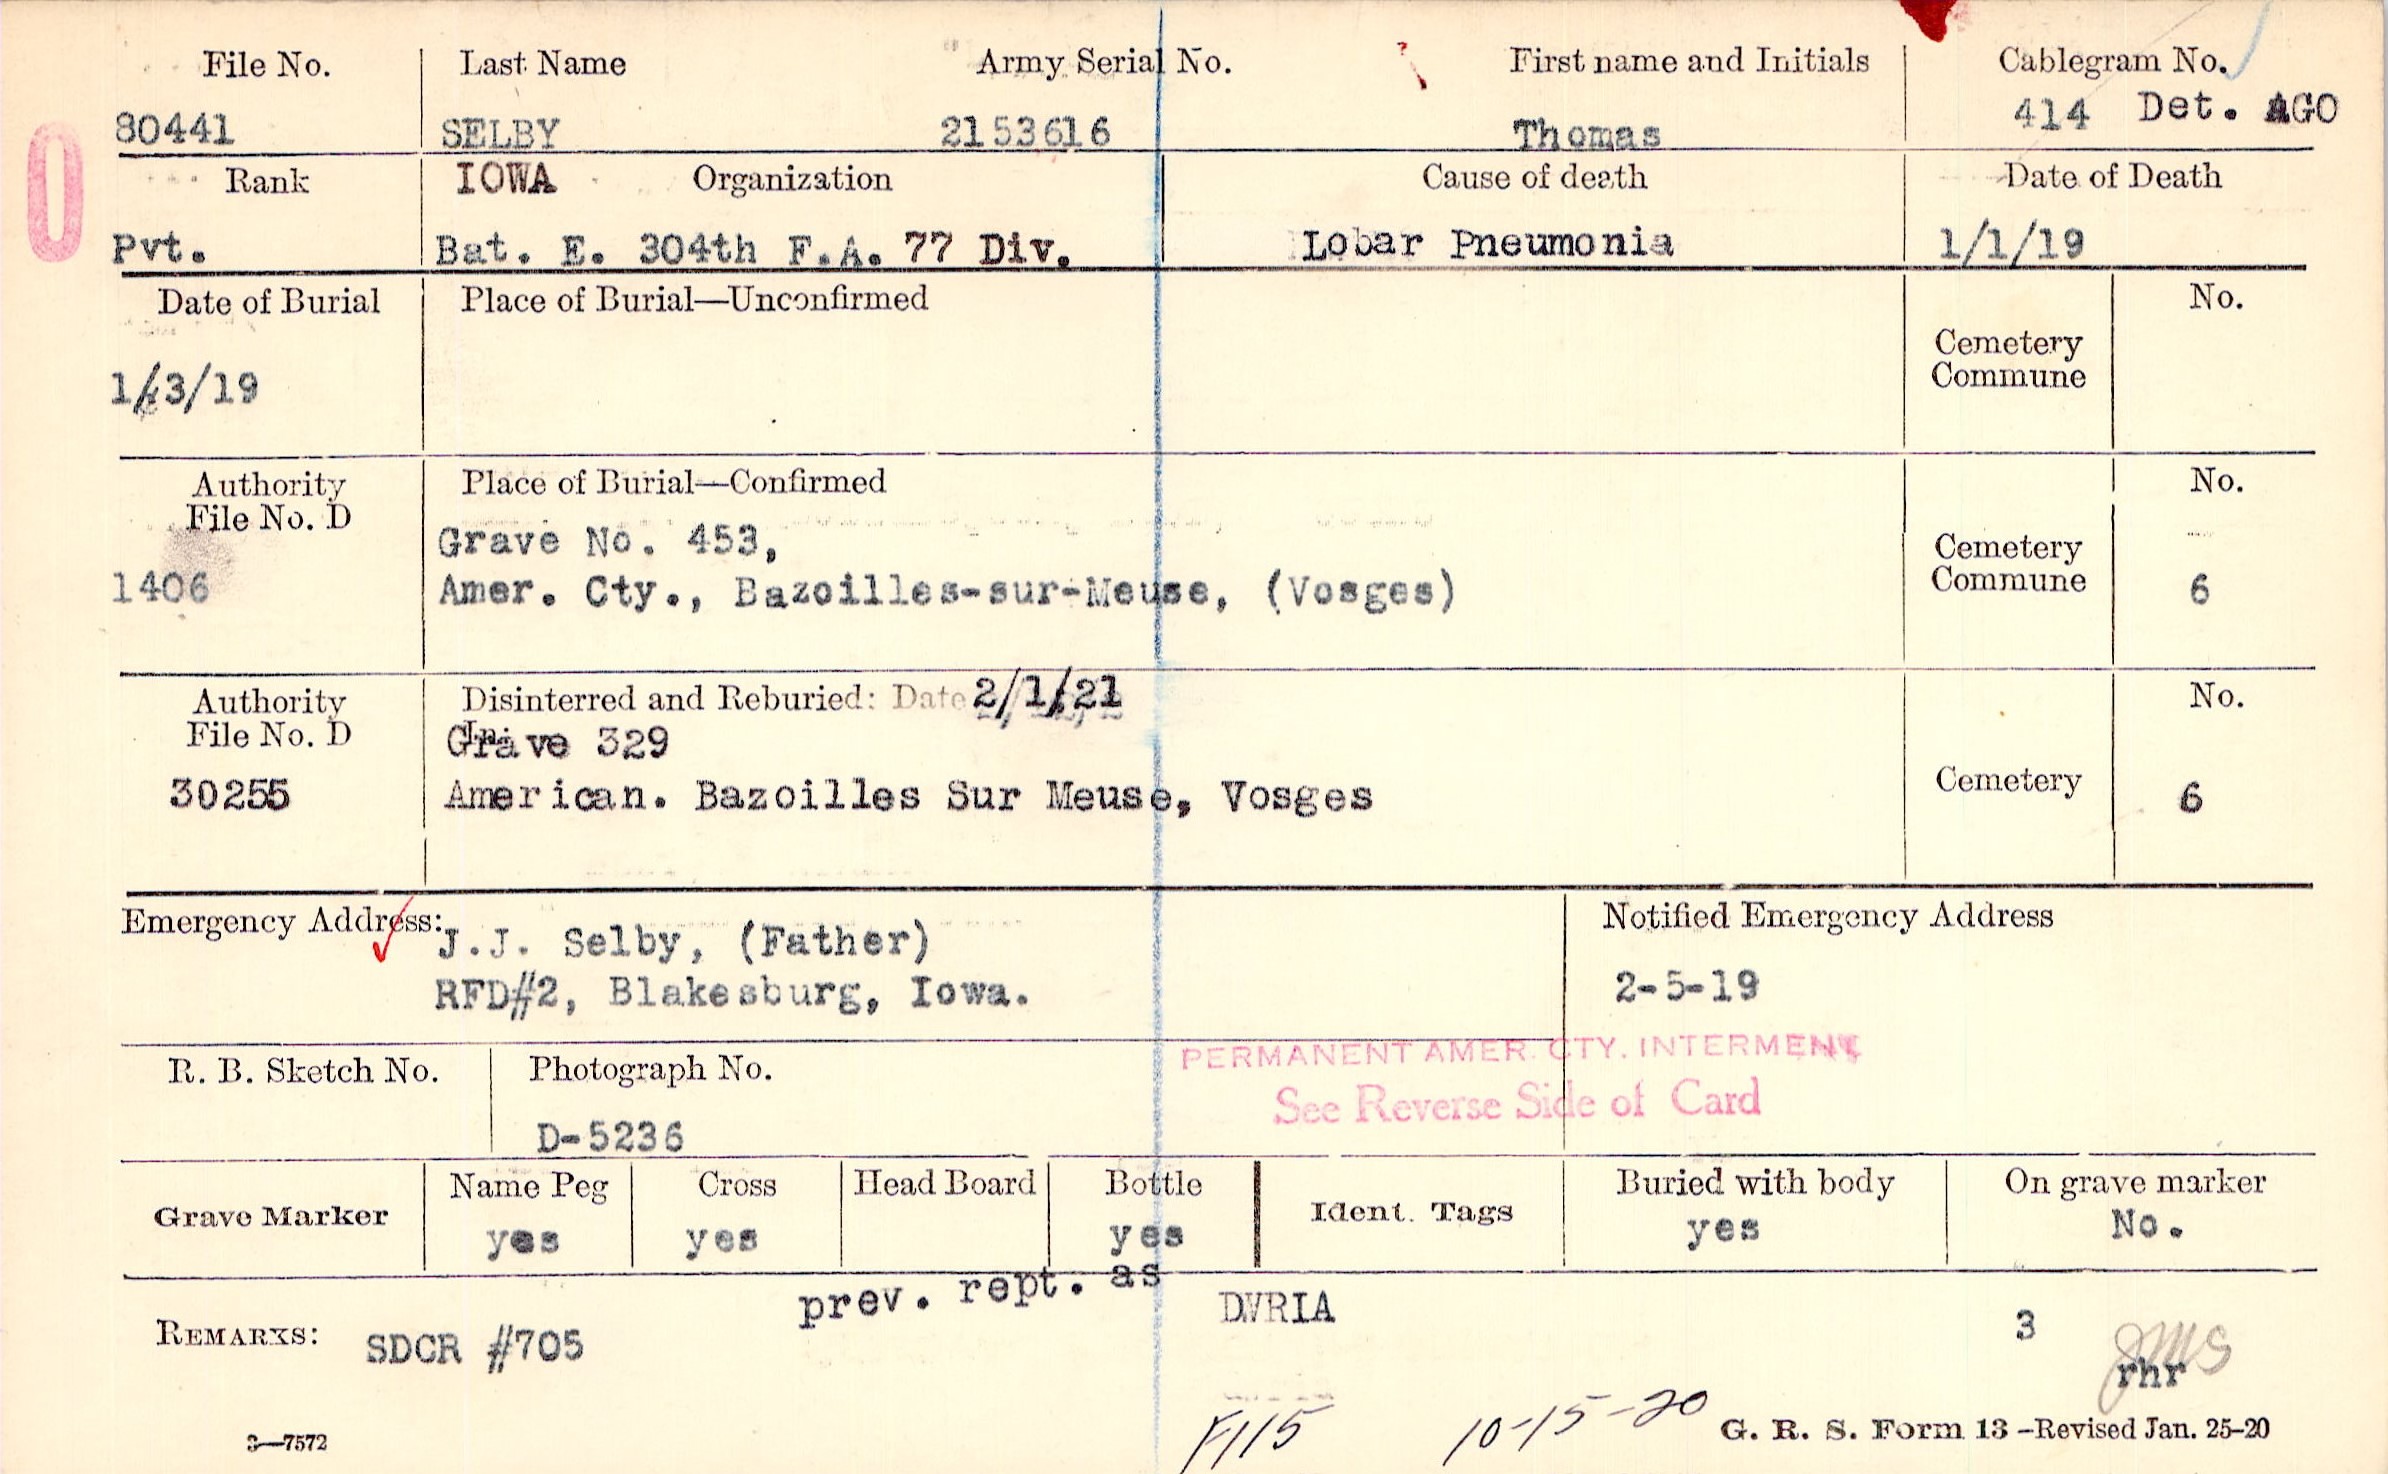 File No. Last Name Army Serial No. First name and Initials Cablegram No.
80441 SELBY 2153616 Thomas 414 Det. AGO
Rank IOWA Organization Cause of death Date of Death
Pvt. Bat. E. 304th F.A. 77 Div. Lobar Pneumonia 1/1/19
Date of Burial Place of Burial—Unconfirmed No.
Cemetery
Commune
1/3/19
Authority Place of Burial—Confirmed No.
File No. D
Grave No. 453,
Cemetery
Commune
1406 Amer. Cty., Bazoilles-sur-Meuse, (Vosges) 6
Authority Disinterred and Reburied: Date 2/1/21 No.
File No. D In:
Grave 329
Cemetery
30255 American. Bazoilles Sur Meuse, Vosges 6
Emergency Address: Notified Emergency Address
J.J. Selby, (Father)
RFD#2, Blakesburg, Iowa. 2-5-19
PERMANENT AMER. CTY. INTERMENT
R. B. Sketch No. Photograph No.
See Reverse Side of Card
D-5236
Name Peg Cross Head Board Bottle Buried with body On grave marker
Grave Marker Ident. Tags
yes yes yes yes No.
prev. rept. as DWRIA 3
REMARKS: SDCR #705
rhr
10-15-20
3—7572 G. R. S. Form 13 -Revised Jan. 25-20